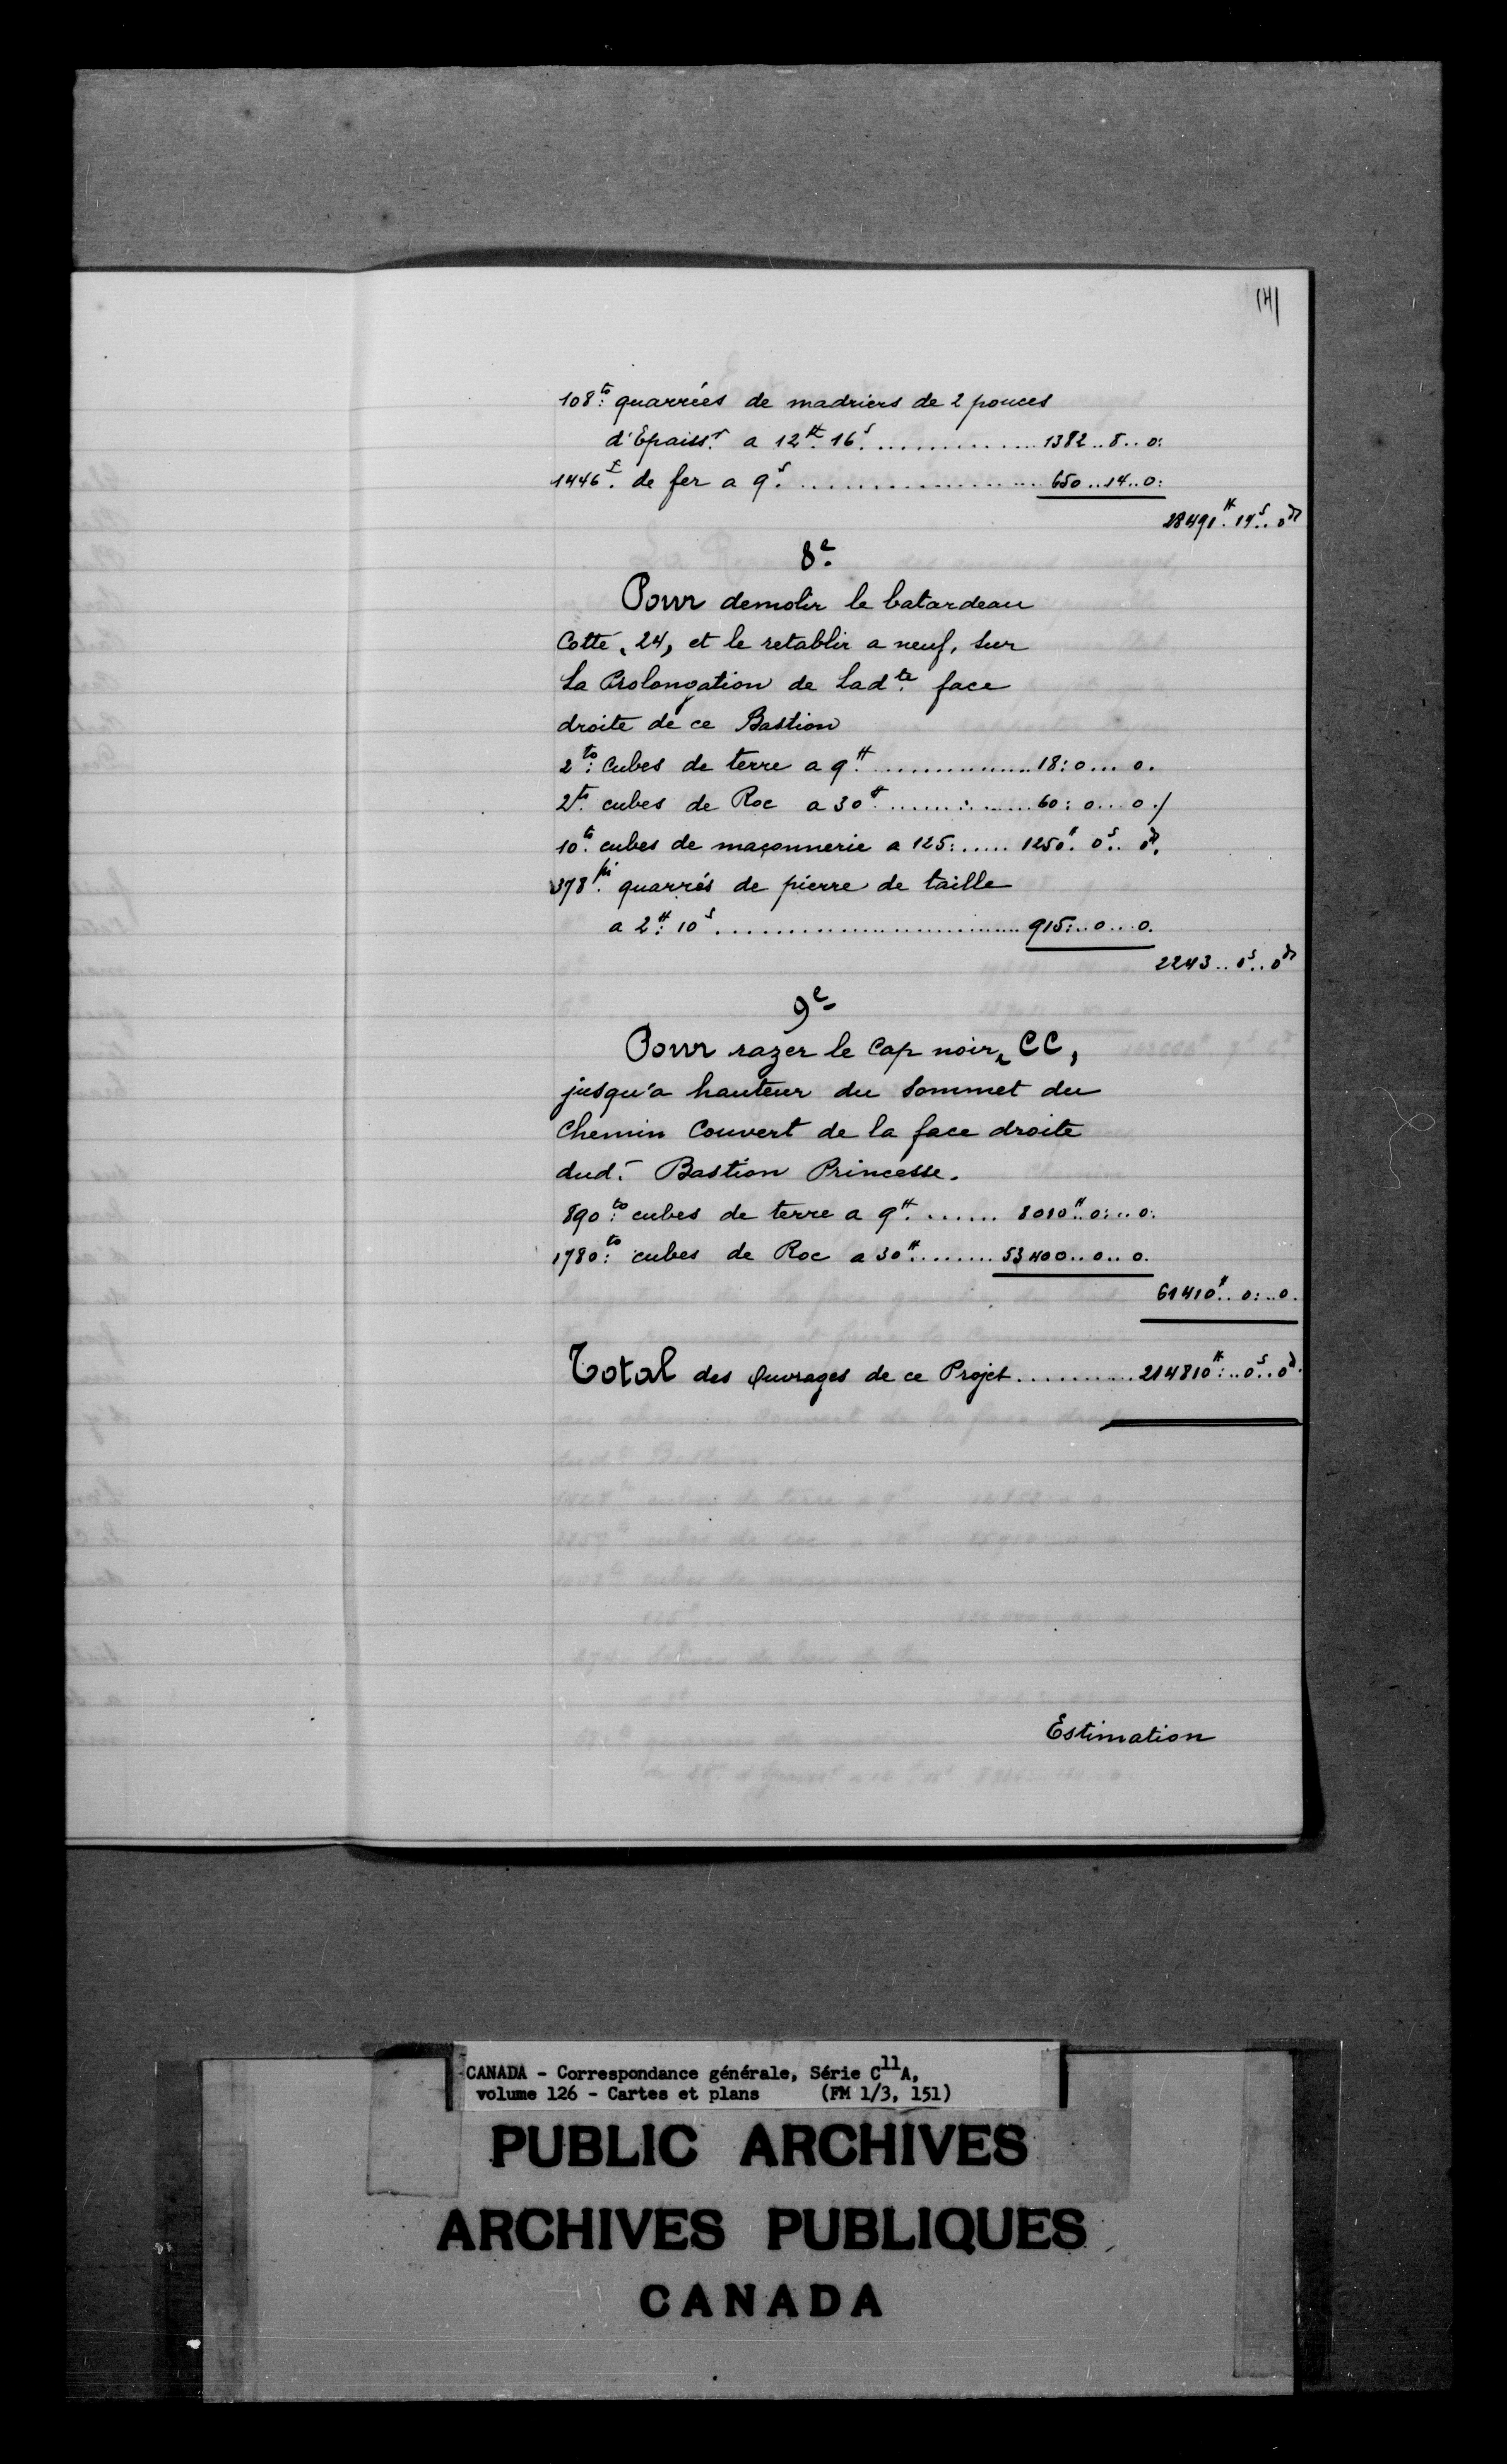 141
108to: quarrées de madriers de 2 pouces
d'Epaissr. a 12# 16s. .............. 1382..8..0:
1446£. de fer a 9s. .................. 650..14..0:
28491#. 14s.. 0ds
8e.
Pour demolir le batardeau
Cotté, 24, et le retablir a neuf, sur
La Prolongation de Ladte. face
droite de ce Bastion
2to: Cubes de terre a 9#. ................ 18:0...0.
2ts. cubes de Roc a 30#. .............. 60:0...0./
10ts. cubes de maçonnerie a 125: ..... 1250#. 0s.. 0d.
378pi. quarrés de pierre de taille
a 2#: 10s. .............................. 915:..0...0.
2243..0s..0ds
9e-
Pour razer le Cap noir, CC,
jusqu'a hauteur du Sommet du
Chemin Couvert de la face droite
dud.t Bastion Princesse.
890to: cubes de terre a 9#. ....... 8010#..0:..0.
1780to: cubes de Roc a 30#. ........ 53400..0..0.
61410#..0:..0.
Total des Ouvrages de ce Projet ............ 214810#:..0s..0d.
Estimation
CANADA - Correspondance générale, Série C11A,
volume 126 - Cartes et plans (FM 1/3, 151)
PUBLIC ARCHIVES
ARCHIVES PUBLIQUES
CANADA